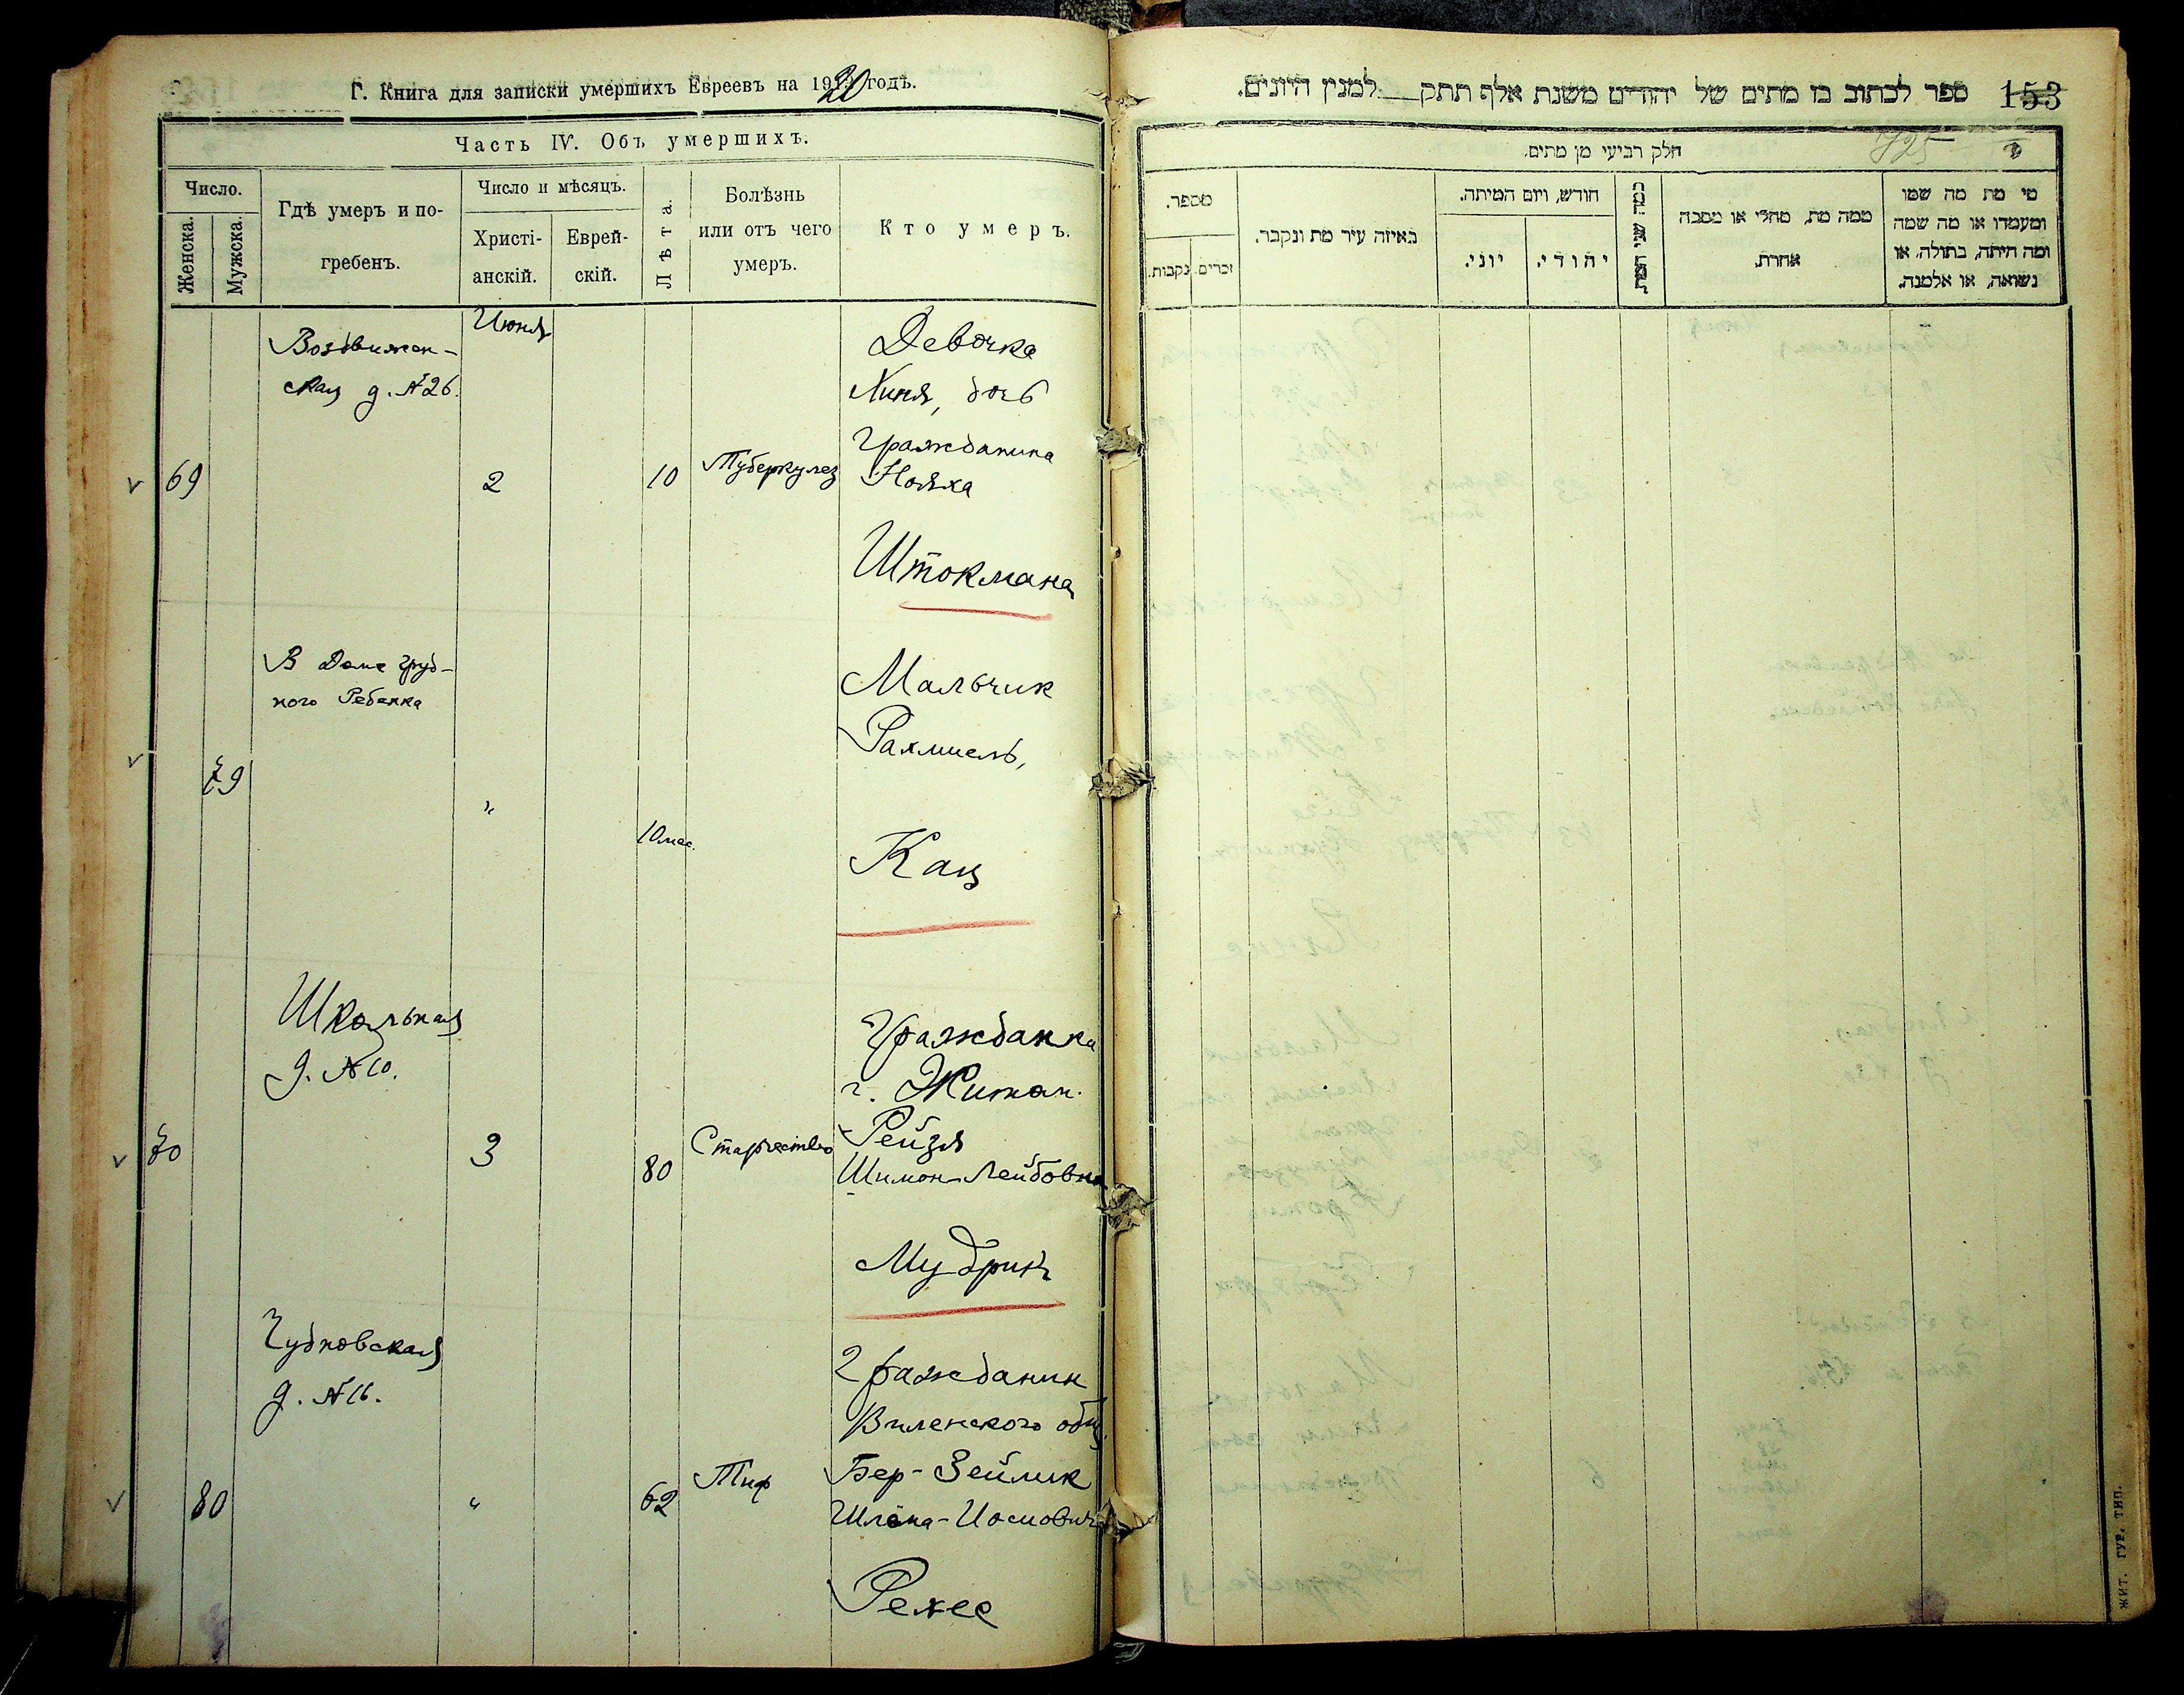 Г. Книга для записки умершихъ Евреевъ на 1920 годъ.
Часть IV. Объ умершихъ.
Число.
Женска.
Мужска.
Гдѣ умеръ и по-
гребенъ.
Число и мѣсяцъ.
Христі-
анскій.
Еврей-
скій.
Лѣта.
Болѣзнь
или отъ чего
умеръ.
Кто умеръ.
Июня
Воздвижен-
ская д. №26.
69
2
10
Туберкулез
Девочка
Хиня, дочь
Гражданина
Нояха
Штокмана
В Доме груд-
ного Ребенка
79
"
10 мес.
Мальчик
Рахмиель,
Кац
Школьная
д. №10.
70
3
80
Старчество
Гражданка
г. Житом.
Рейзя
Шимон-Лейбовна
Мудрик
Чудновская
д. №16.
80
"
62
Тиф
Гражданин
Виленского общ.
Бер-Зейлик
Шлёма-Иосиович
ספר לכתוב בו מתים של יהודים משנת אלף תתק למנין היונים.
153
חלק רביעי מן מתים.
825
מספר.
זכרים
נקבות.
באיזה עיר מת ונקבר.
חודש, ויום המיתה.
יוני.
יהודי.
כמה שני המת
ממה מת, מחלי או מסבה
אחרת.
מי מת מה שמו
ומעמדו או מה שמה
ומה היתה, בתולה, או
נשואה, או אלמנה.
ЖИТ. ГУБ. ТИП.